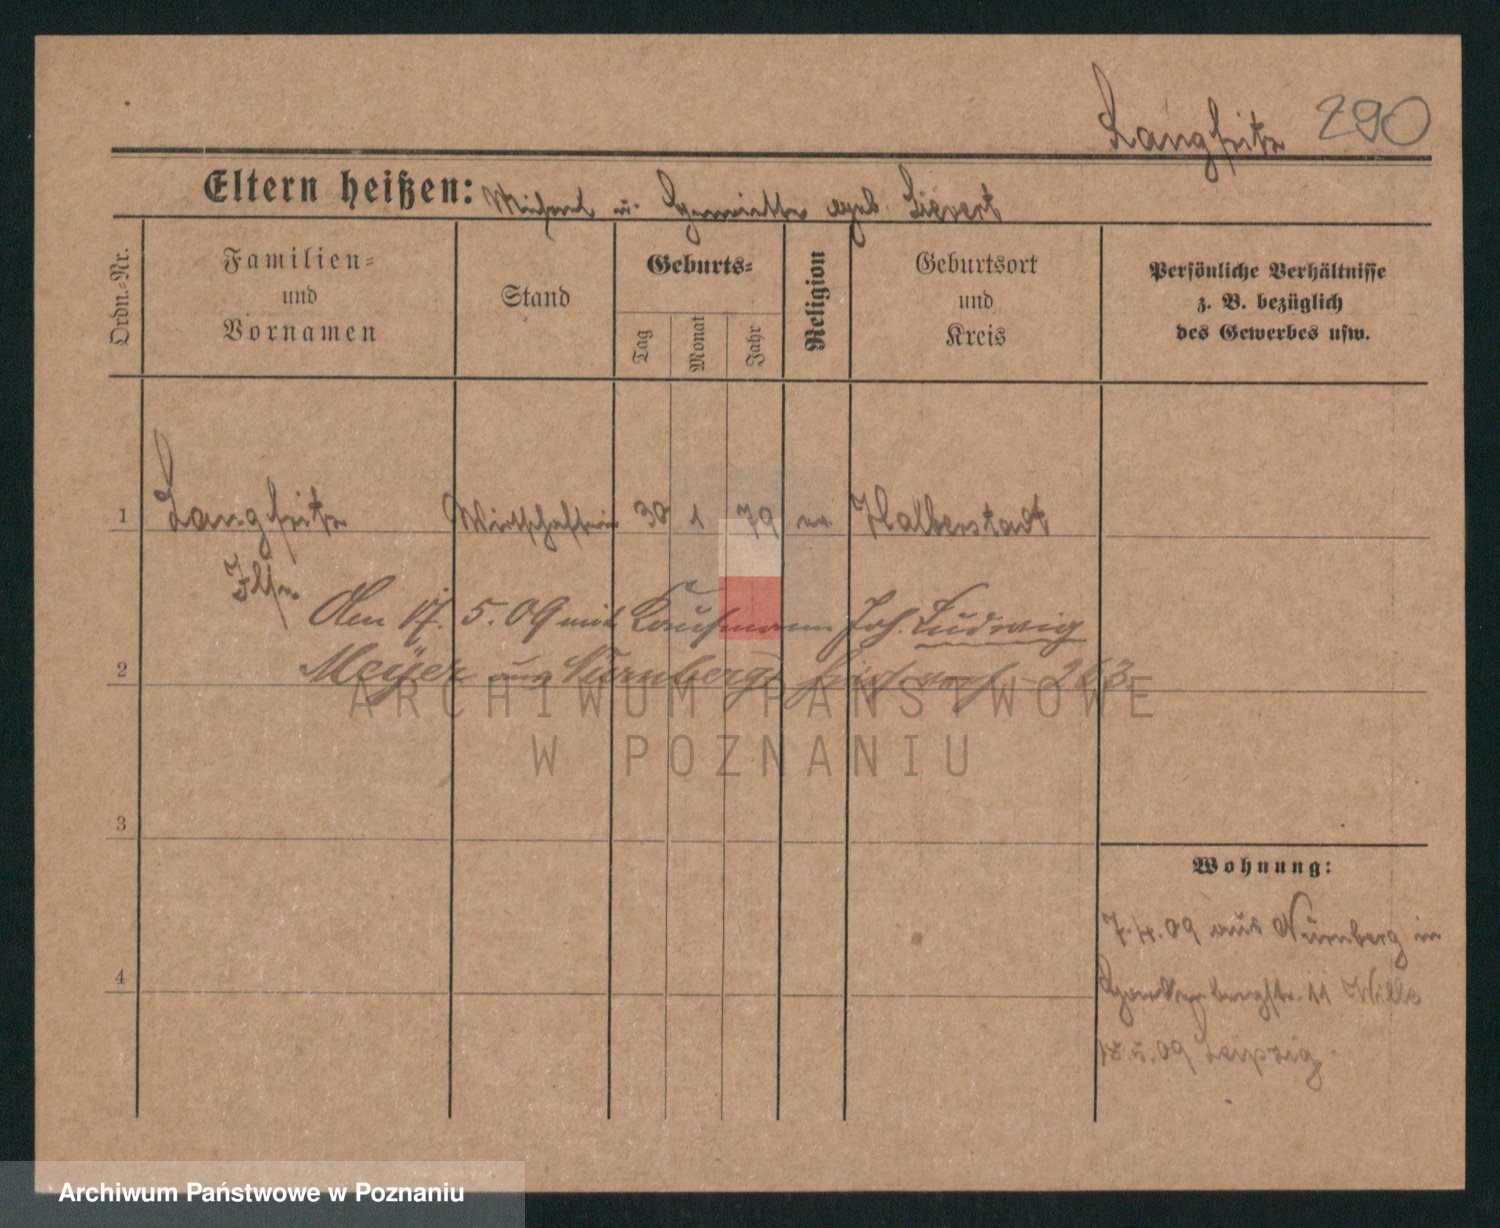 Langfritz 290
Eltern heißen: Michael u. Henriette geb. Sievert
Ordn.-Nr.
Familien- und Vornamen
Stand
Geburts-
Tag
Monat
Jahr
Religion
Geburtsort und Kreis
Persönliche Verhältnisse
z. B. bezüglich
des Gewerbes usw.
1 Langfritz Wirtschafterin 30 1 79 ev. Halberstadt
Ilse
Am 17. 5. 09 mit Kaufmann Joh. Ludwig
2 Meyer aus Nürnberg 263
ARCHIWUM PAŃSTWOWE
W POZNANIU
3
Wohnung:
7.4.09 aus Nürnberg in
4
11 Wille
18.5.09 Leipzig
Archiwum Państwowe w Poznaniu